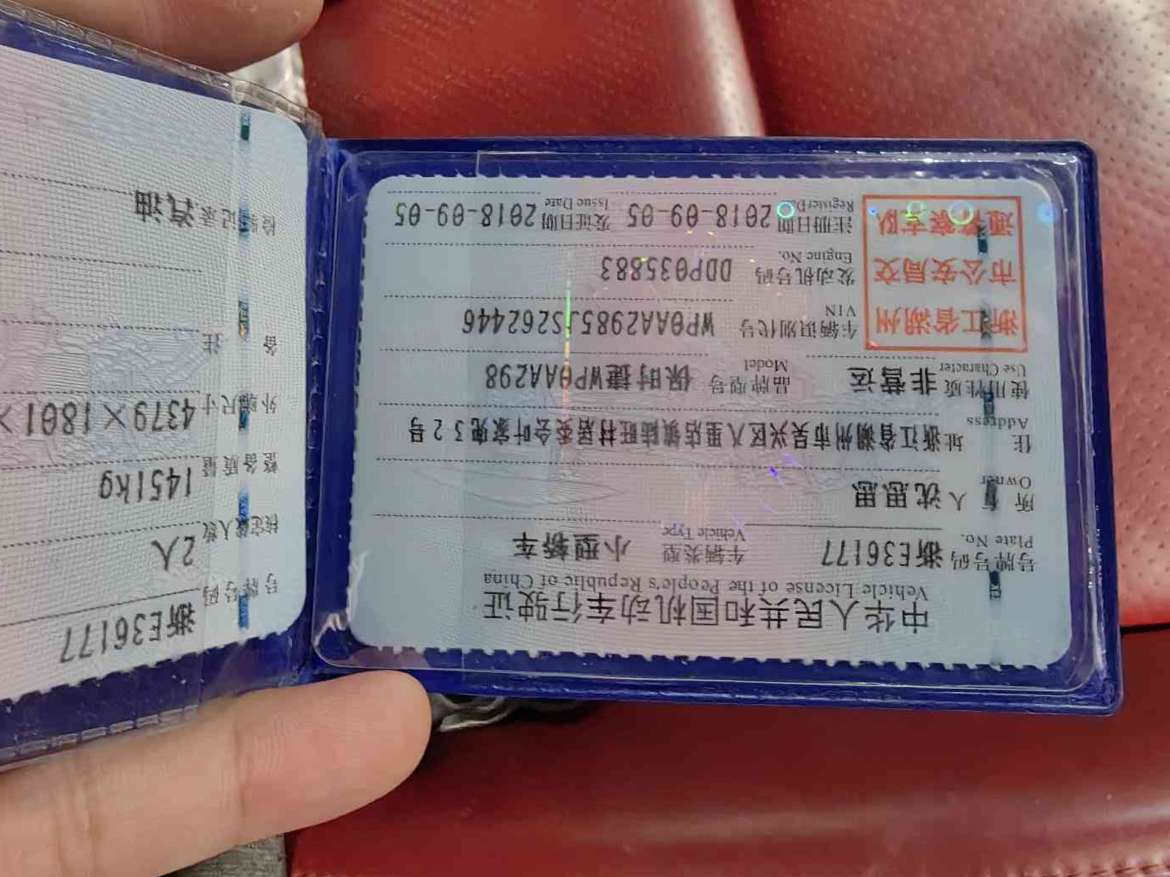 中华人民共和国机动车行驶证
Vehicle License of the People's Republic of China
号牌号码 浙E36177 车辆类型 小型轿车
Plate No. Vehicle Type
所有人 沈思思
Owner
住址 浙江省湖州市吴兴区八里店镇陆旺村居委会叶家兜32号
Address
使用性质 非营运 品牌型号 保时捷WP0AA298
Use Character Model
浙江省湖州
市公安局交
通警察支队
车辆识别代号 WP0AA2985JS262446
VIN
发动机号码 DDP035883
Engine No.
注册日期 2018-09-05 发证日期 2018-09-05
Register Issue Date
号牌号码 浙E36177
核定载人数 2人
整备质量 1451kg
外廓尺寸 4379×1801×
备注
检验记录 汽油